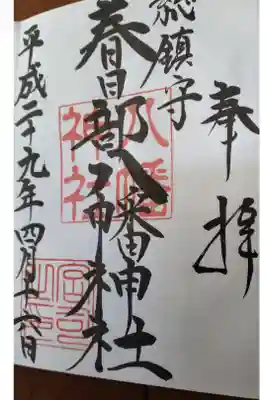 奉拝
総鎮守
春日部八幡神社
平成二十九年四月十六日
八幡
神社
宮司
之印